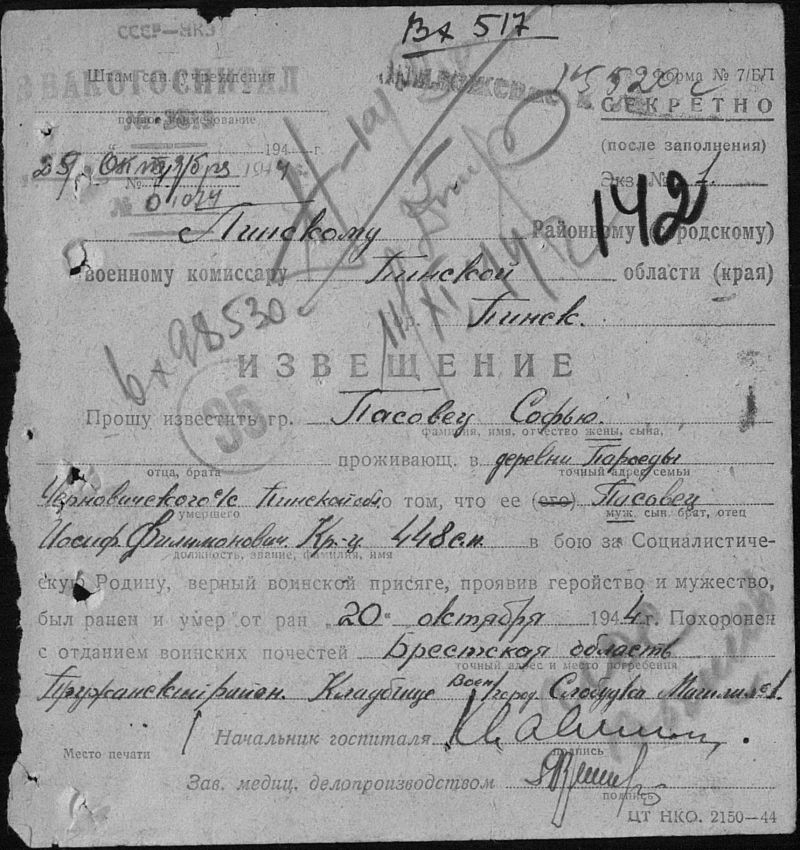 СССР—НКЗ
Вх 517
Штамп сан. учреждения
ЭВАКОГОСПИТАЛ
Приложение
15520с
Форма № 7/БЛ
полное наименование
СЕКРЕТНО
(после заполнения)
„ “ 194 г.
25 Октября 1944
№ 01074
Экз. № 1.
142
Пинскому Районному (городскому)
военному комиссару Пинской области (края)
г. Пинск.
вх 98530с
ИЗВЕЩЕНИЕ
35
Прошу известить гр. Пасовец Софью.
фамилия, имя, отчество жены, сына,
проживающ. в деревни Пароеды
отца, брата
точный адрес семьи
Черновичского с/с Пинской об. о том, что ее (его) Пасовец
умершего
муж, сын, брат, отец
Иосиф Филимонович Кр-ц 448 сп в бою за Социалистиче-
должность, звание, фамилия, имя
скую Родину, верный воинской присяге, проявив геройство и мужество,
был ранен и умер от ран „20“ октября 1944 г. Похоронен
с отданием воинских почестей Брестская область
точный адрес и место погребения
Пружанский район. Кладбище Воен. город. Слободка Могила № 1.
Начальник госпиталя
подпись
Место печати
Зав. медиц. делопроизводством
подпись
ЦТ НКО. 2150—44